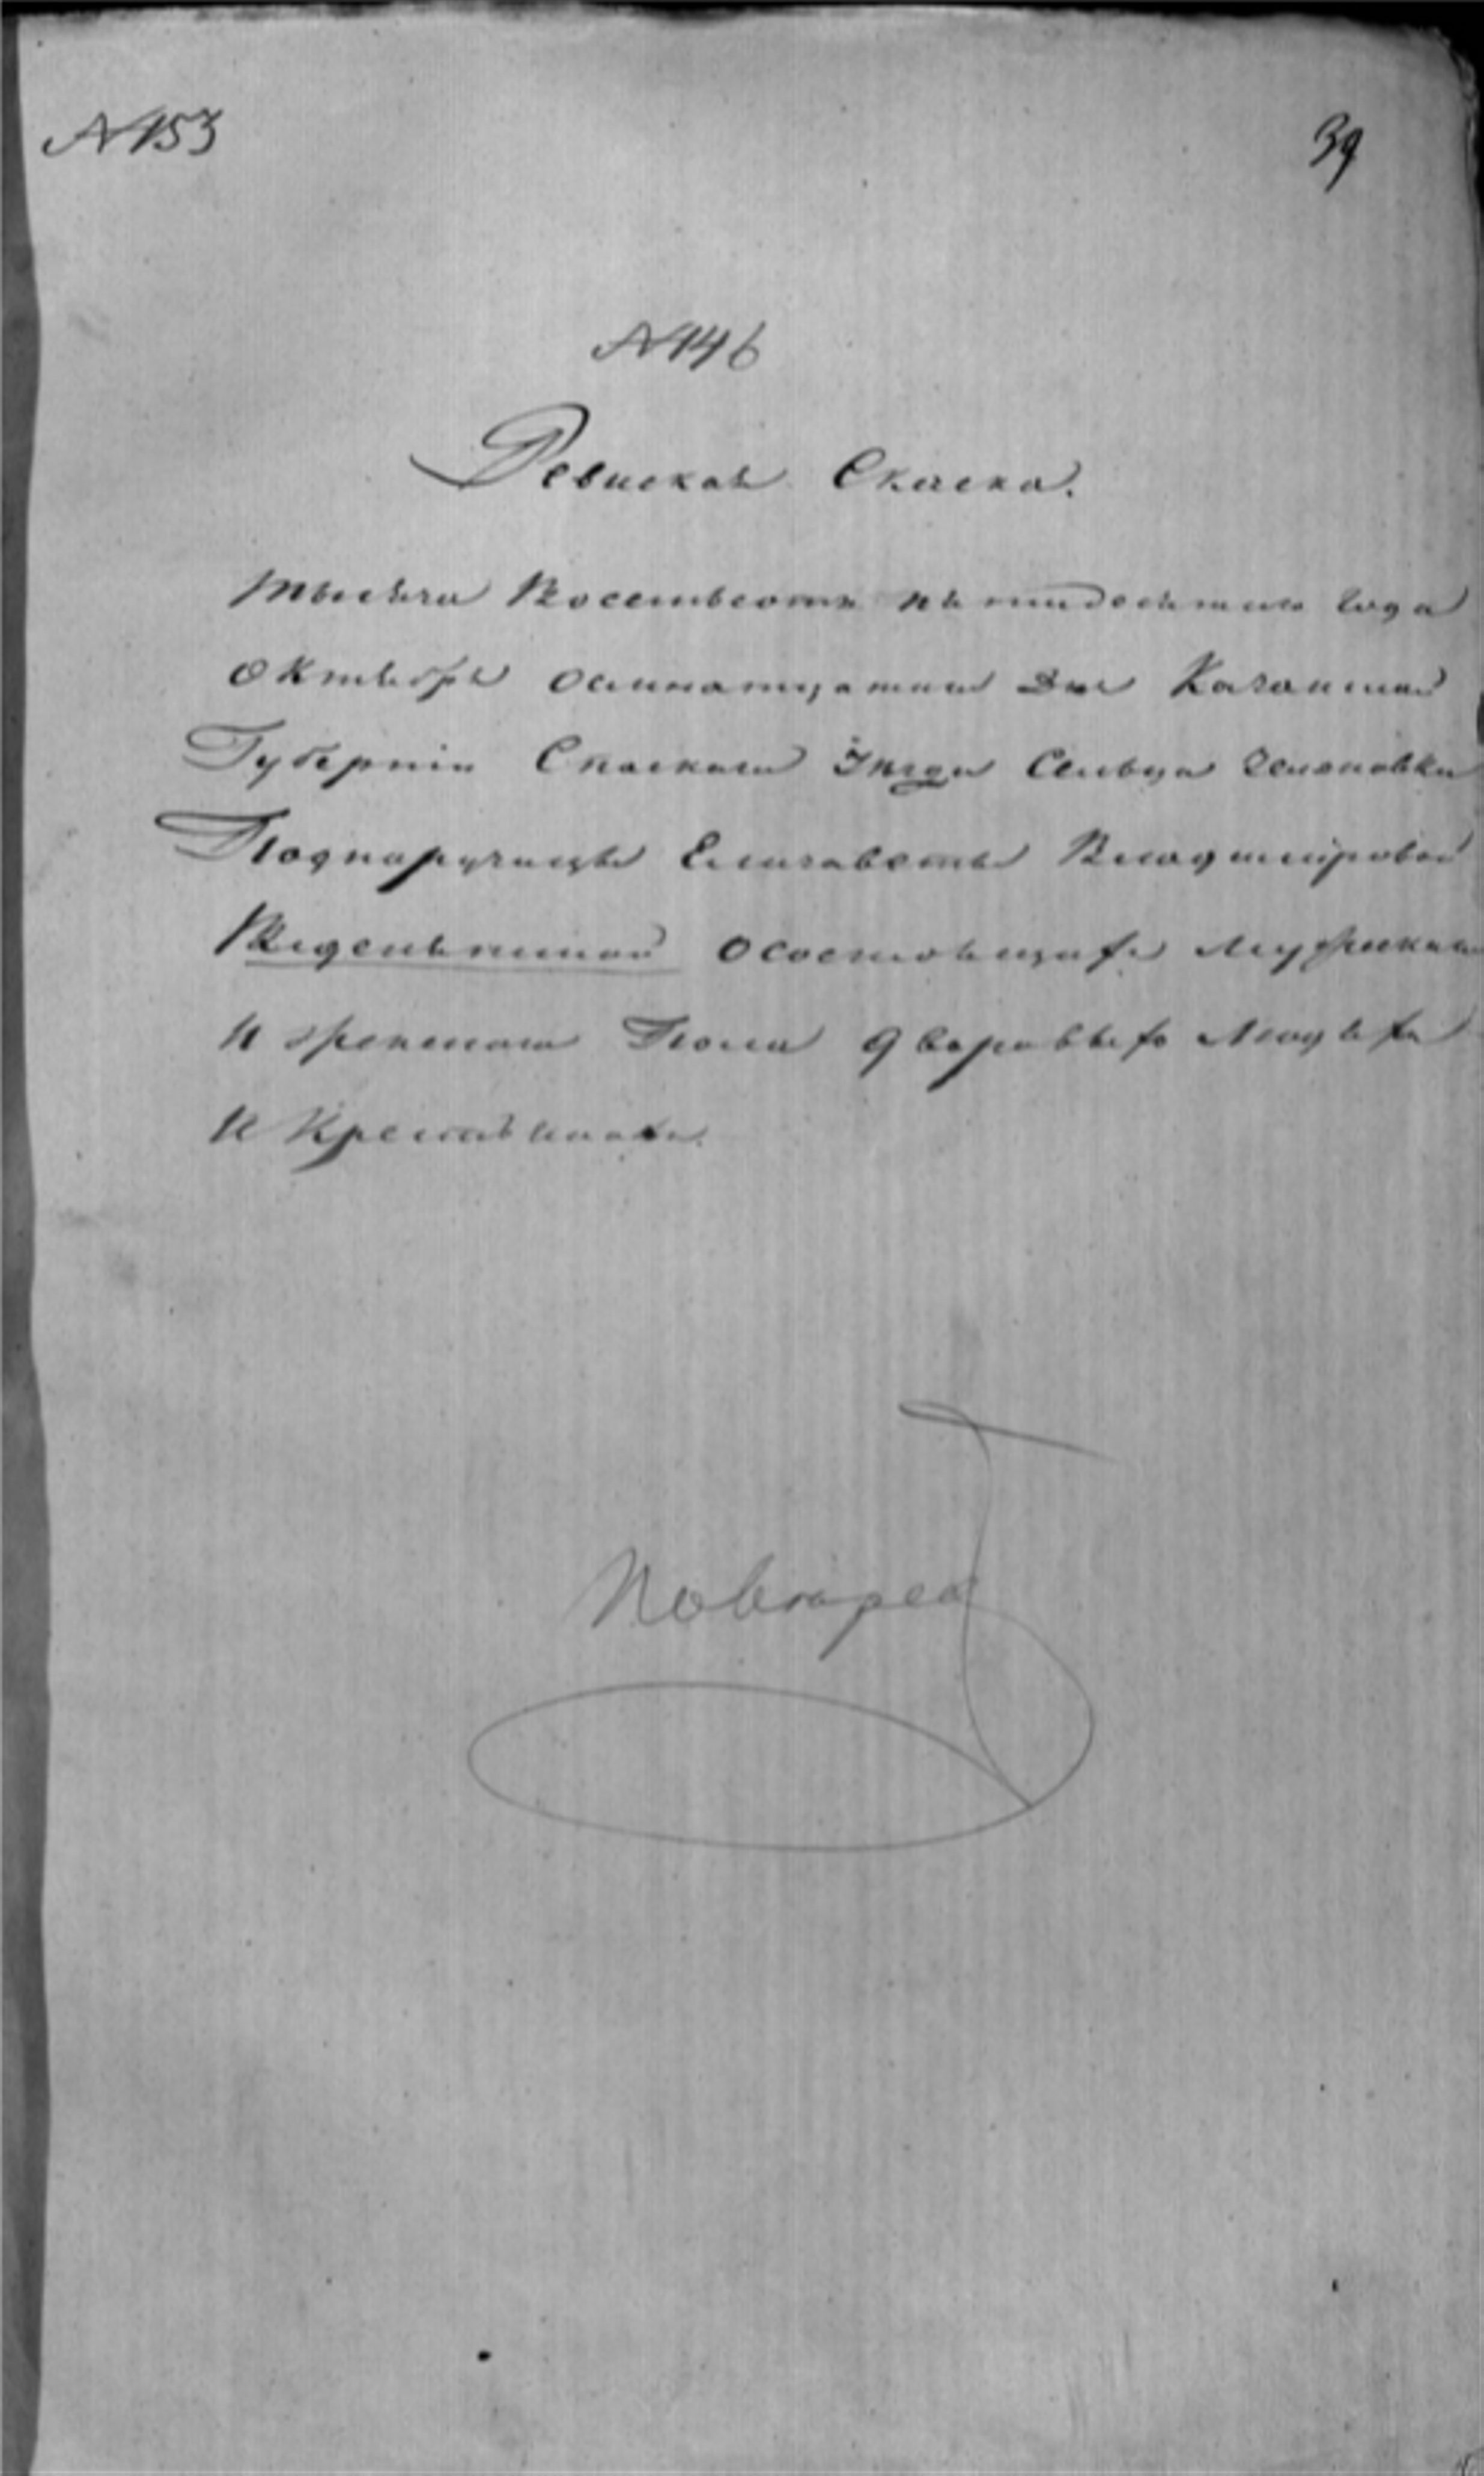 № 153
39
№ 146
Ревиская Скаска.
тысяча Восемьсотъ пятидесятаго года
Октября осмнатцатаго дня Казанской
Губернiи Спаскаго Уѣзда Сельца
Подпоручицы Елизаветы Владимировой
осостоящихъ Мужскаго
И женскаго Пола дворовыхъ Людѣхъ
И Крестьянахъ.